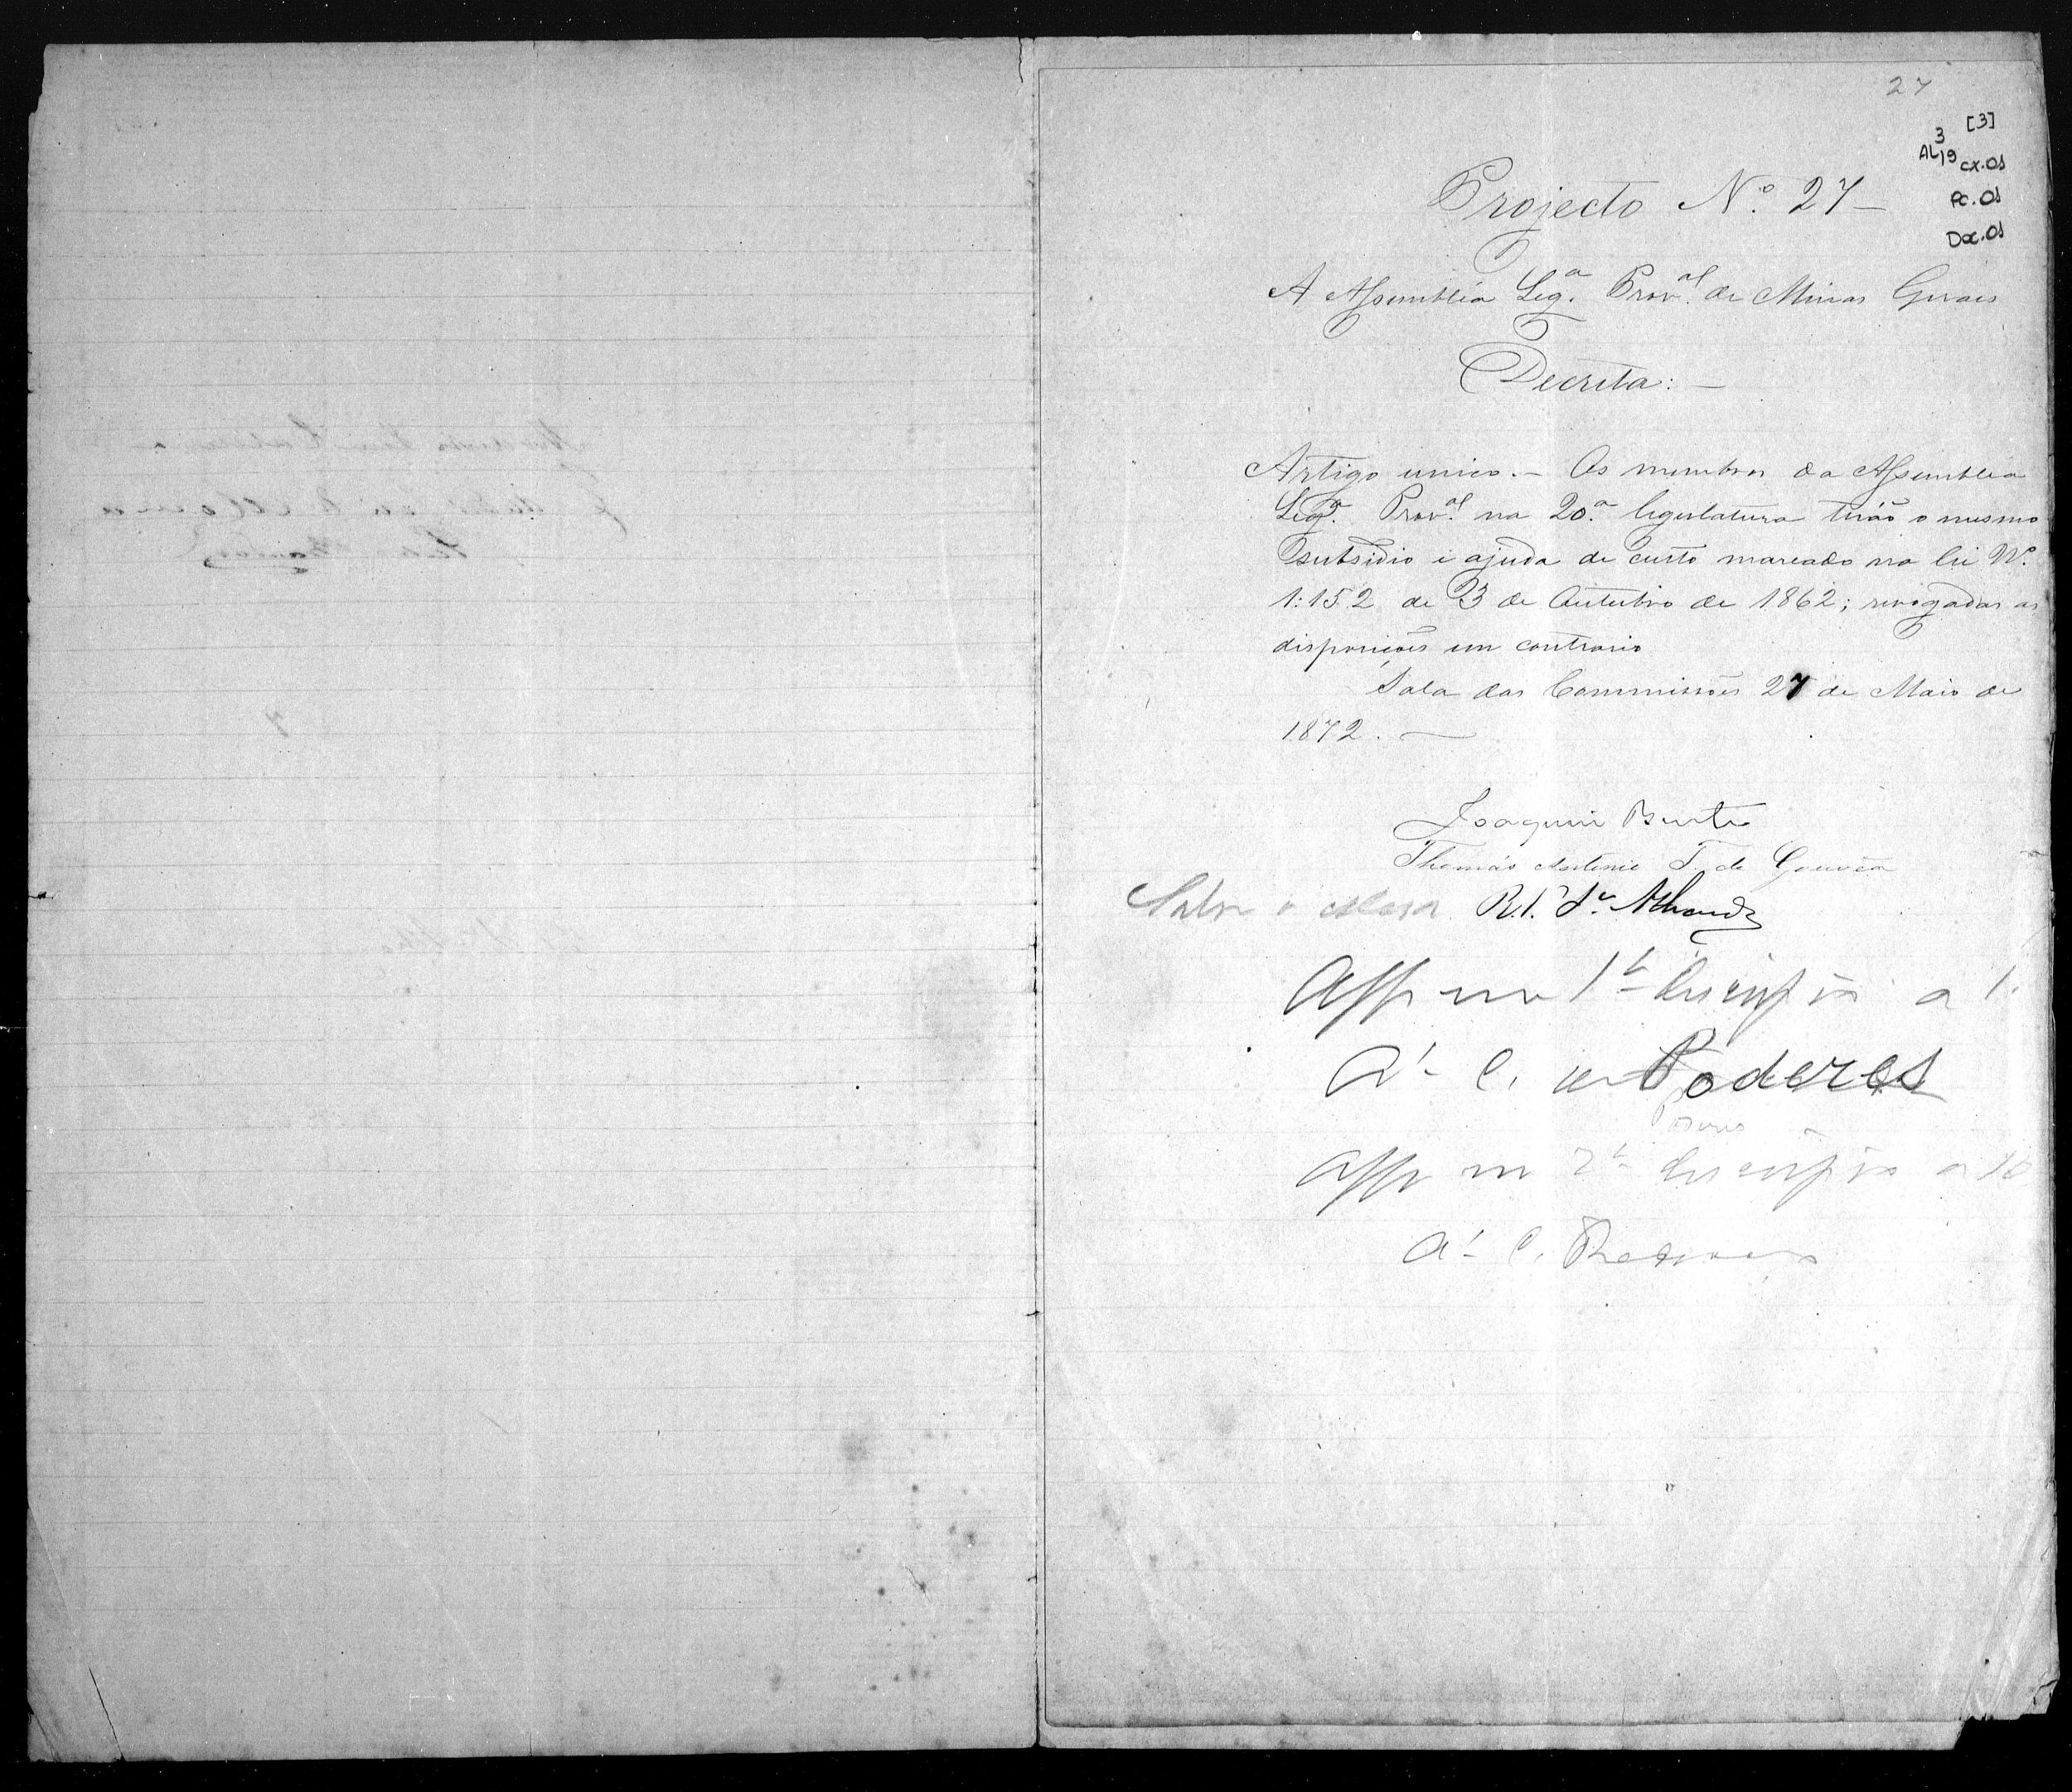 27
[3]
AL 19 3 CX.01
PC.01
Doc.01
Projecto N.º 27 –
A Assembléa Leg.ª Prov.al de Minas Geraes
Decreta: –
Artigo unico. – Os membros da Assembléa
Leg.ª Prov.al na 20.ª legislatura terão o mesmo
subsidio e ajuda de custo marcado na lei N.º
1:152 de 3 de Outubro de 1862; revogadas as
disposições em contrario
Sala das Commissões 27 de Maio de
1872. –
Joaquim Bento
Thomás Antonio T. de Gouvêa
R. I. S.
App em 1ª discussão a 1.
A' C. de Poderes
App em 2ª discussão a
A' C.